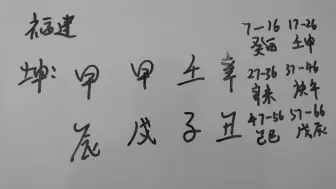 福建
坤: 甲 甲 壬 辛
辰 戌 子 丑
7-16 17-26
癸酉 壬申
27-36 37-46
辛未 庚午
47-56 57-66
己巳 戊辰